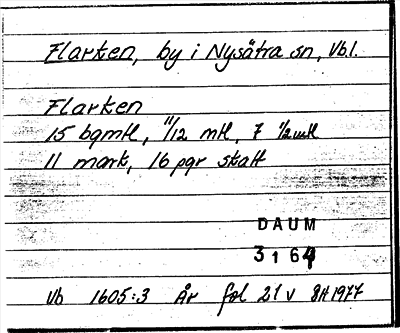 Flarken, by i Nysätra sn, Vb.l.
Flarken
15 bgmtl, 11/12 mtl, 7 1/2 mtl
11 mark, 16 pgr skatt
DAUM
3164
Vb 1605:3 År fol 21 v BH 1977